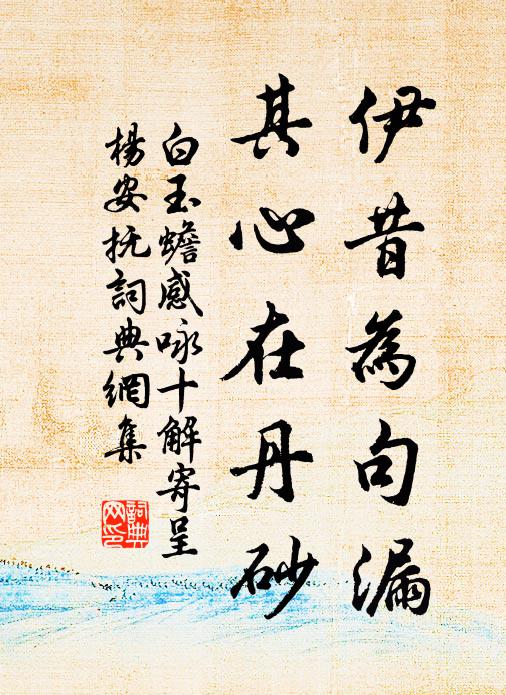 伊昔為句漏
其心在丹砂
白玉蟾感咏十解寄呈
楊安抚詞典網集
詞典网印